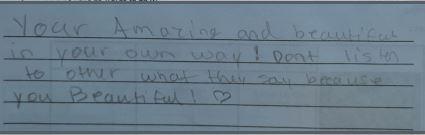 Your Amazing and beautiful
in your own way! Dont listen
to other what they say because
you Beautiful! ♡